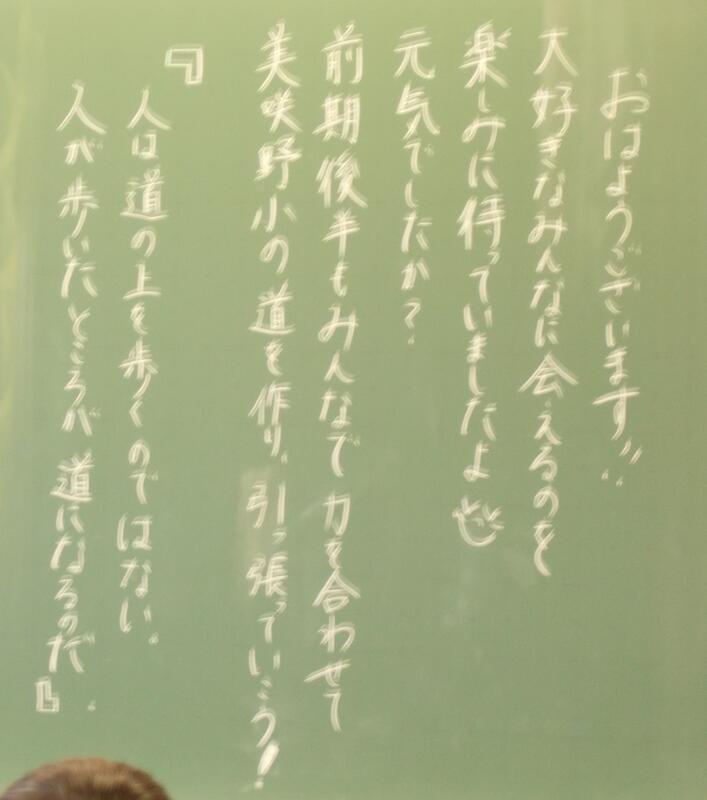 おはようございます!!
大好きなみんなに会えるのを
楽しみに待っていましたよ
元気でしたか?
前期後半もみんなで力を合わせて
美咲野小の道を作り、引っ張っていこう!
『人は道の上を歩くのではない。
人が歩いたところが道になるのだ。』